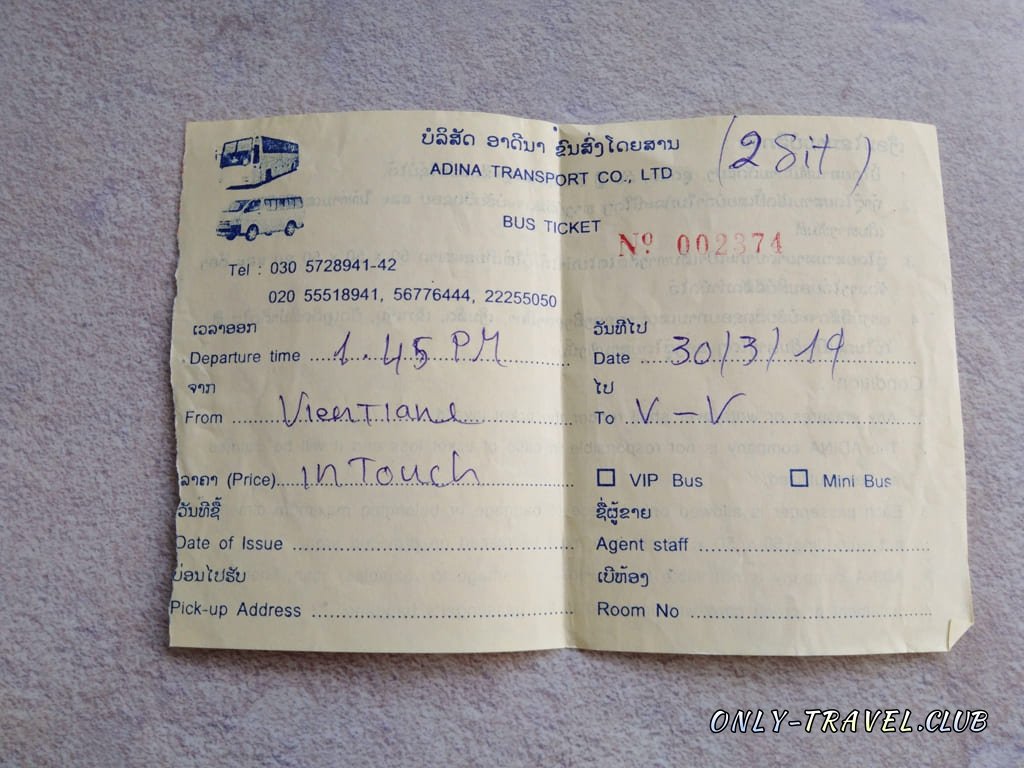 ບໍລິສັດ ອາດີນາ ຂົນສົ່ງໂດຍສານ
(2 Sit)
ADINA TRANSPORT CO., LTD
BUS TICKET
Nº 002374
Tel : 030 5728941-42
020 55518941, 56776444, 22255050
ເວລາອອກ
ວັນທີໄປ
Departure time 1.45 PM
Date 30/3/19
ຈາກ
ໄປ
From VienTiane
To V-V
ລາຄາ (Price) in Touch
VIP Bus Mini Bus
ວັນທີຊື້
ຊື່ຜູ້ຂາຍ
Date of Issue
Agent staff
ບ່ອນໄປຮັບ
ເບີຫ້ອງ
Pick-up Address
Room No
ONLY-TRAVEL.CLUB